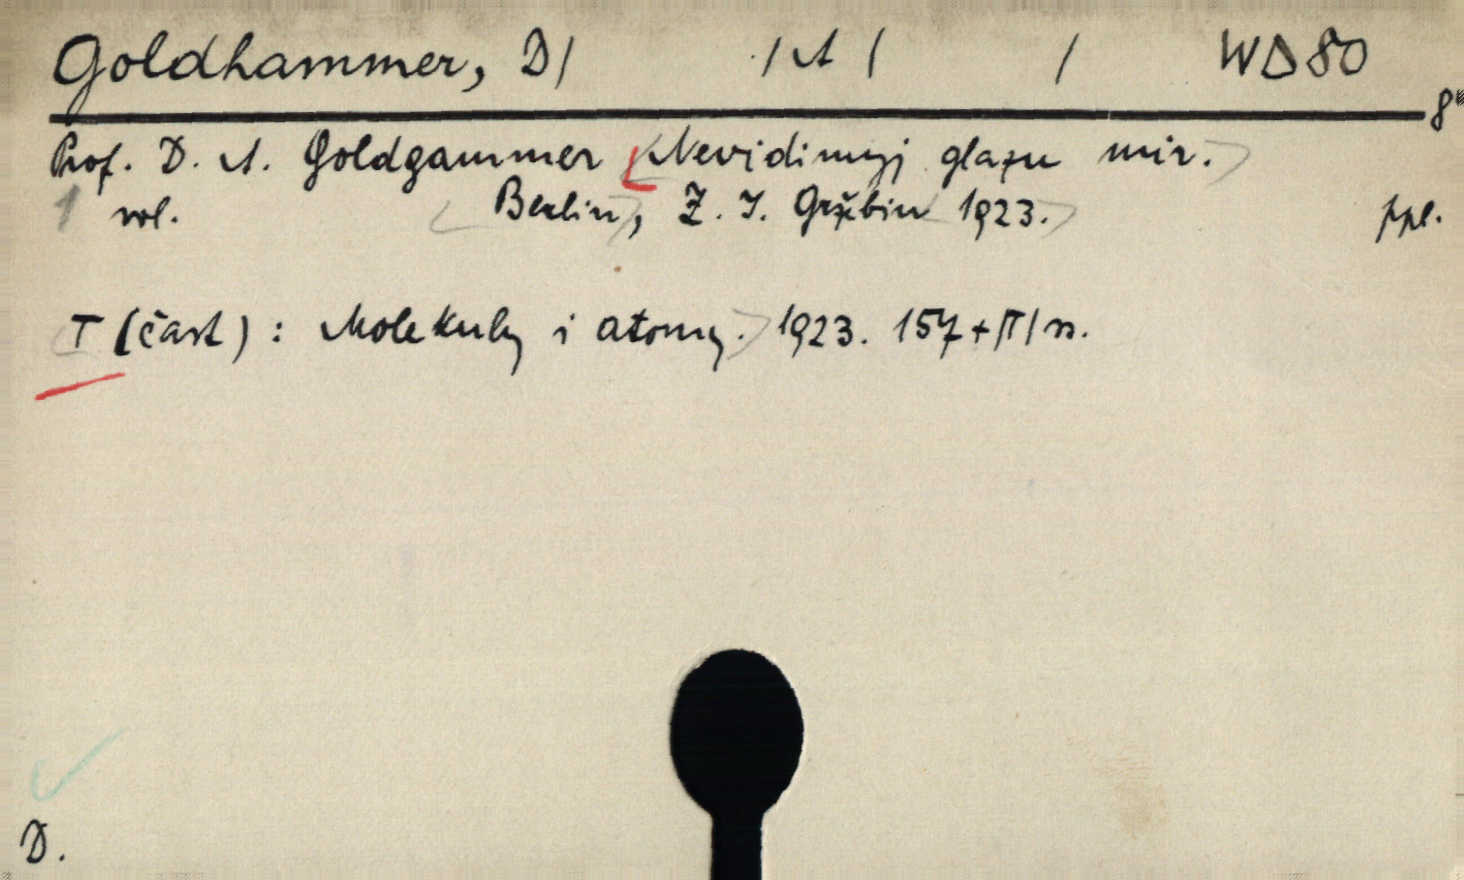 Goldhammer, D/ /A/ / WD80
8°
Prof. D. A. Goldgammer Nevidimyj glazu mir.
1 vol. Berlin, Z. I. Gržebin 1923. ppl.
I (čast) : Molekuly i atomy. 1923. 157+/II/ n.
D.